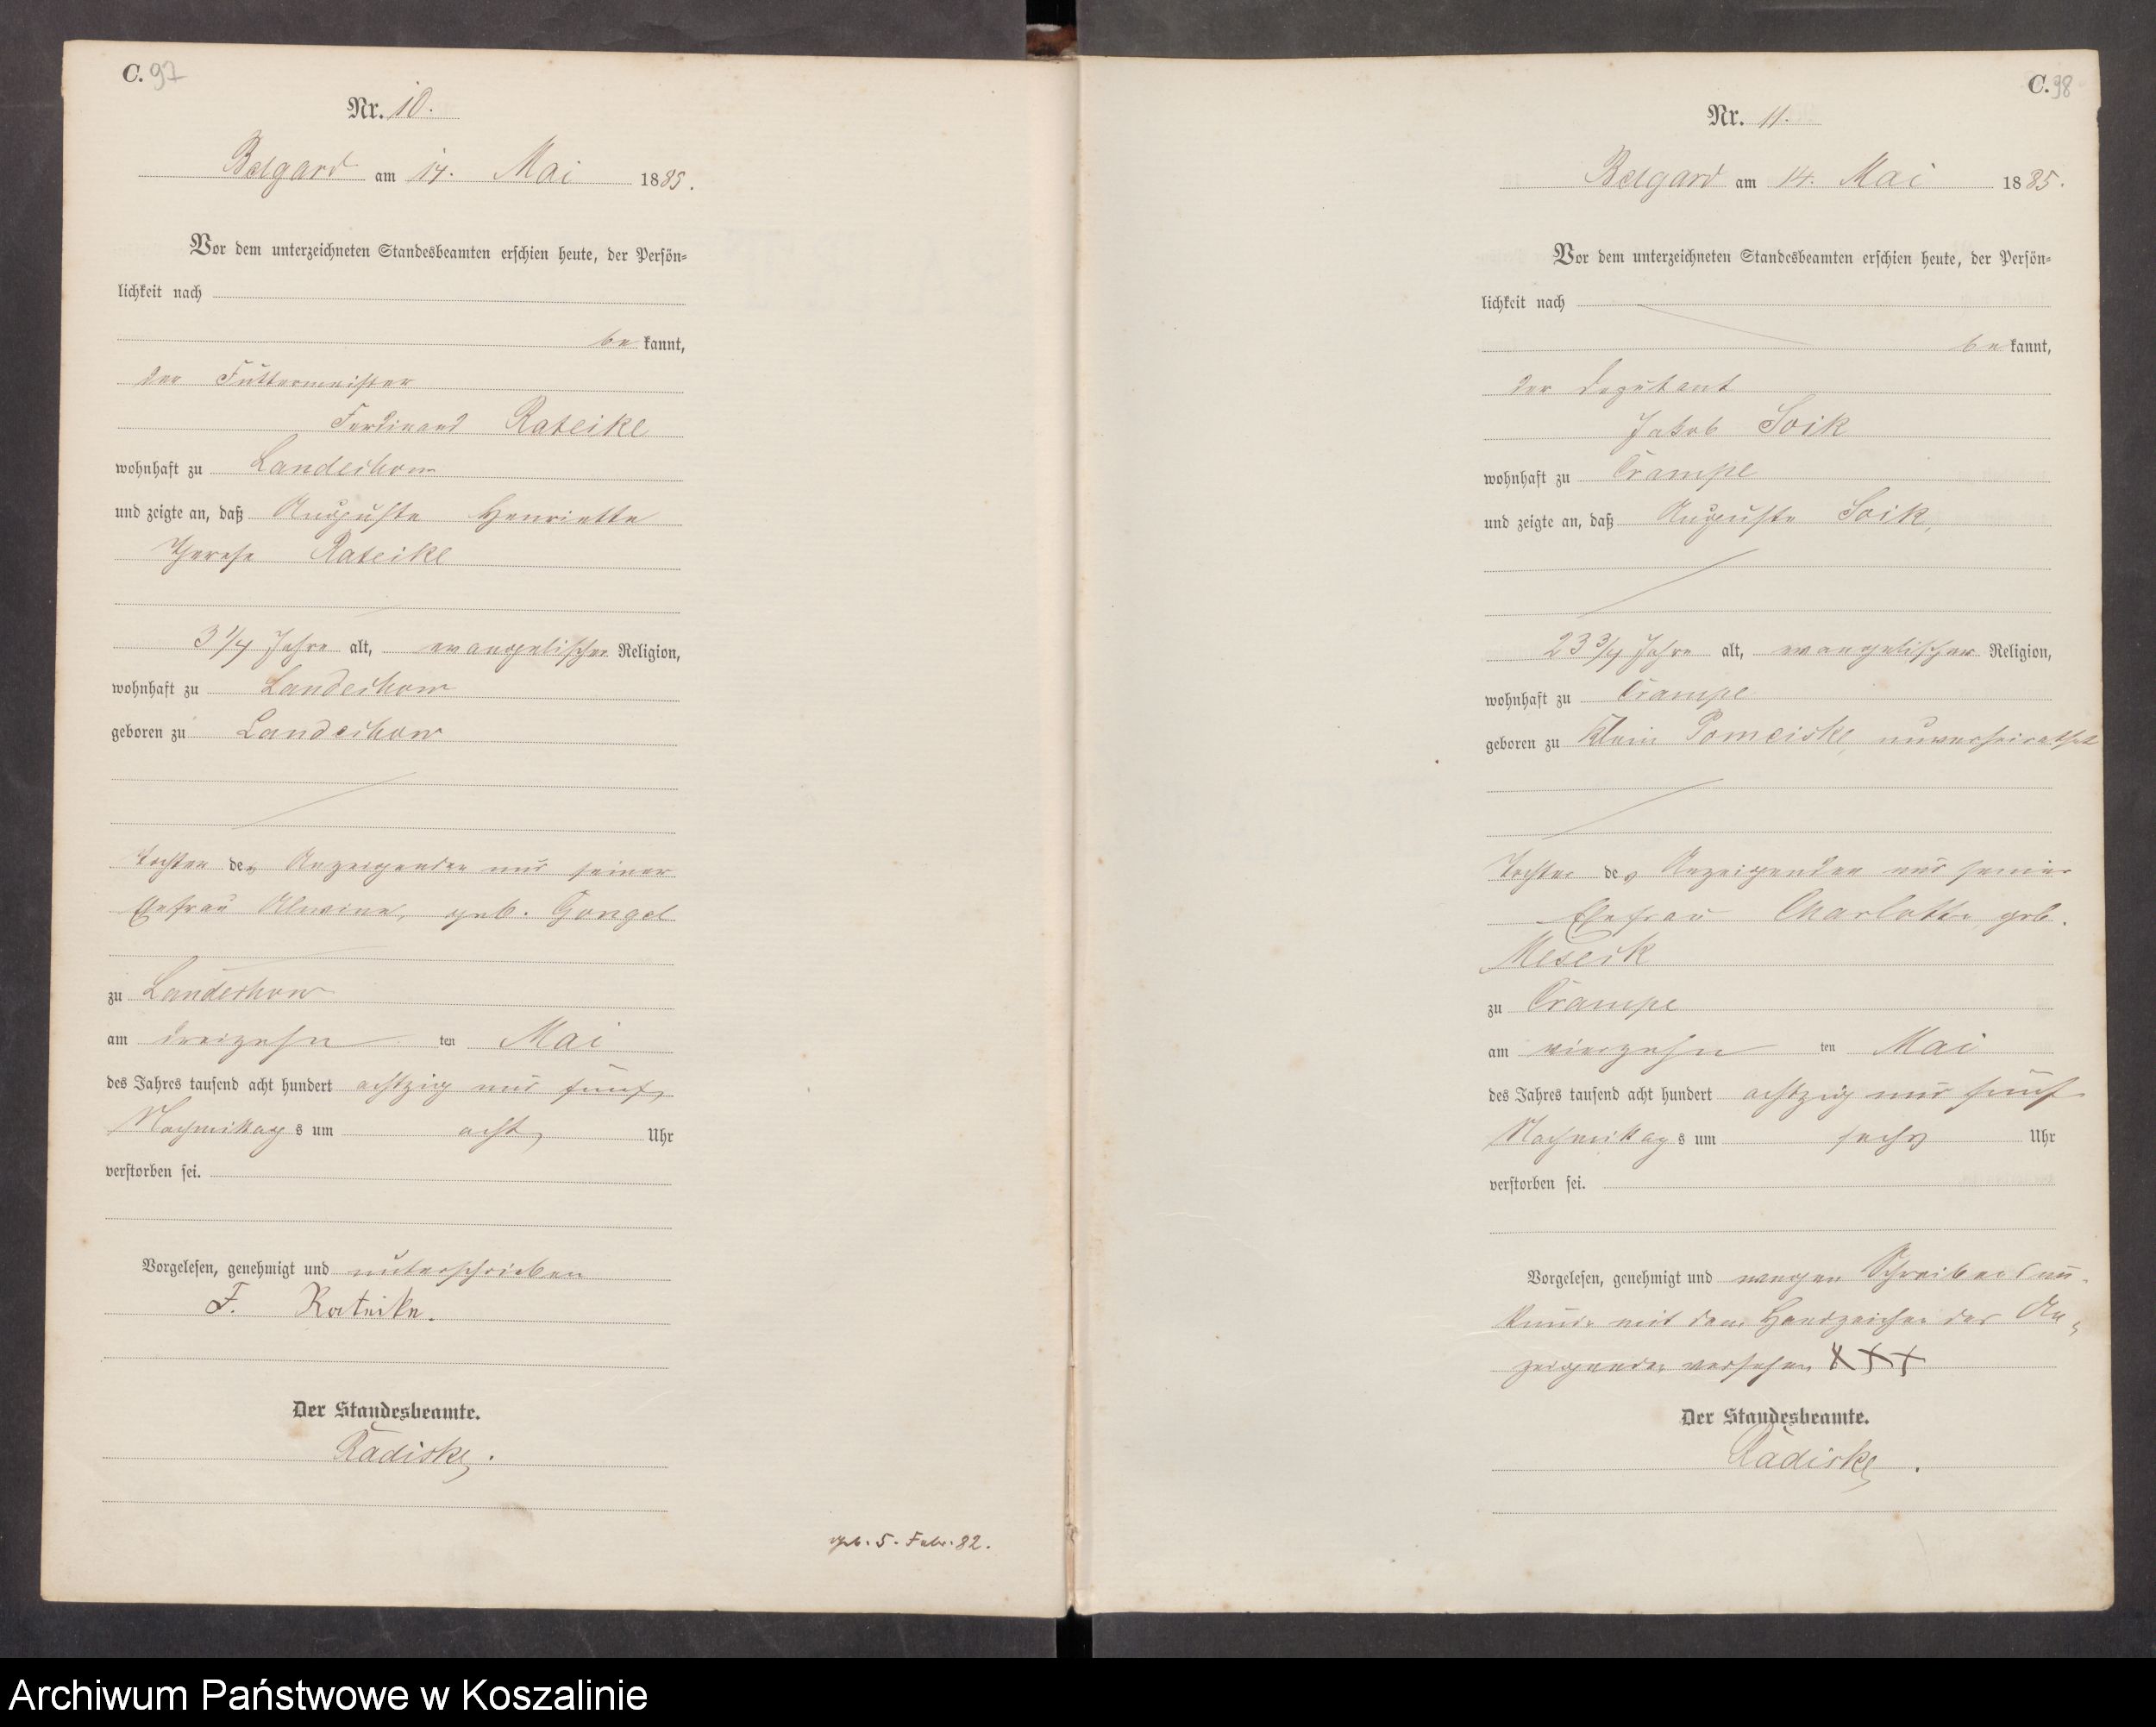 C. 97
Nr. 10.
Belgard am 14. Mai 1885.
Vor dem unterzeichneten Standesbeamten erschien heute, der Persön-
lichkeit nach
be kannt,
der Futtermeister
Ferdinand Rateike
wohnhaft zu Landechow
und zeigte an, daß Auguste Henriette
Therese Rateike
3 1/4 Jahre alt, evangelischer Religion,
wohnhaft zu Landechow
geboren zu Landechow
Tochter des Anzeigenden und seiner
Ehefrau Alwine, geb. Gongel
zu Landechow
am dreizehn ten Mai
des Jahres tausend acht hundert achtzig und fünf,
Nachmittags um acht Uhr
verstorben sei.
Vorgelesen, genehmigt und unterschrieben
F. Rateike.
Der Standesbeamte.
Radiske.
geb. 5. Febr. 82.
C. 98
Nr. 11.
Belgard am 14. Mai 1885.
Vor dem unterzeichneten Standesbeamten erschien heute, der Persön-
lichkeit nach
be kannt,
der Deputant
Jakob Soik
wohnhaft zu Crampe
und zeigte an, daß Auguste Soik,
23 3/4 Jahre alt, evangelischer Religion,
wohnhaft zu Crampe
geboren zu Klein Pomeiske, unverheirathet
Tochter des Anzeigenden und seiner
Ehefrau Charlotte, geb.
Meseik
zu Crampe
am vierzehn ten Mai
des Jahres tausend acht hundert achtzig und fünf
Nachmittags um sechs Uhr
verstorben sei.
Vorgelesen, genehmigt und wegen Schreibensun-
kunde mit dem Handzeichen des An-
zeigenden versehen XXX
Der Standesbeamte.
Radiske.
Archiwum Państwowe w Koszalinie